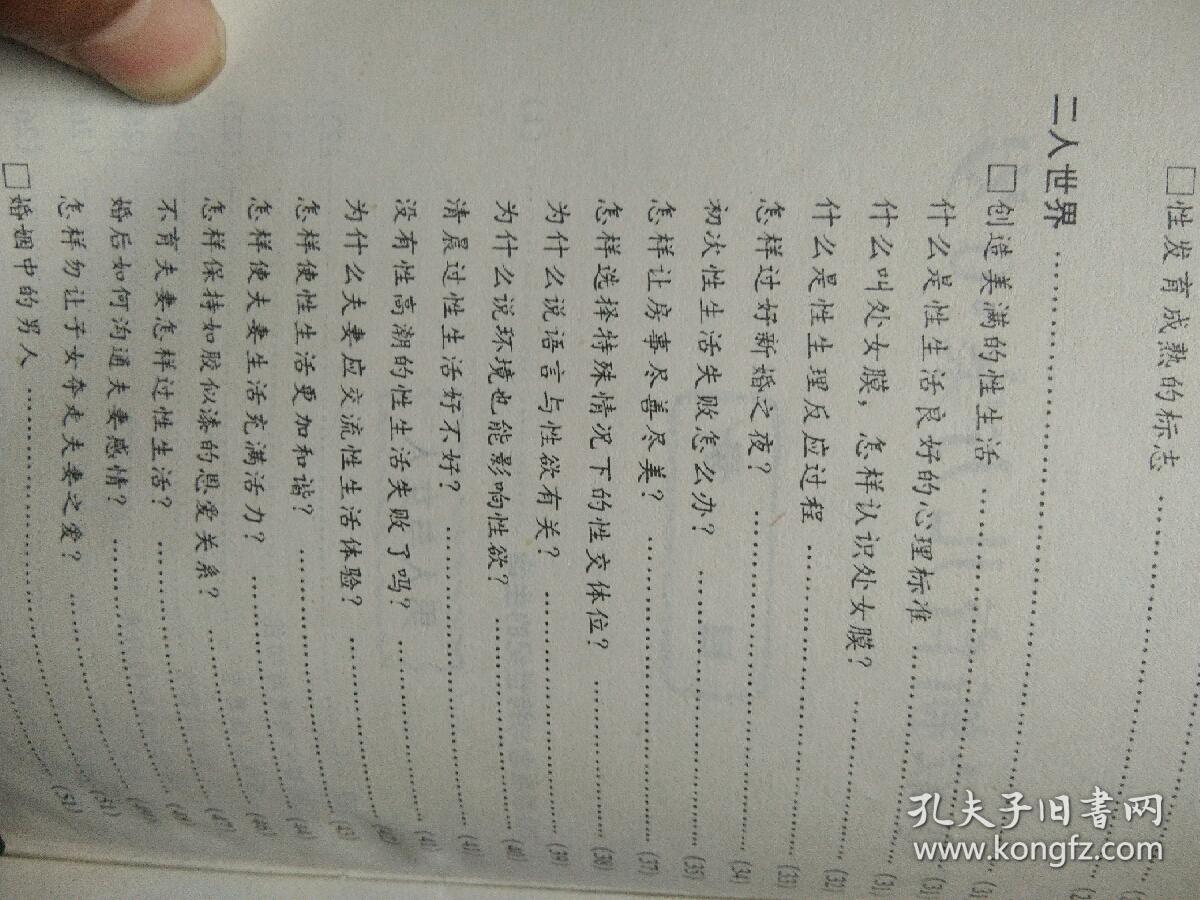 □性发育成熟的标志 ……………… (2
二人世界 ……………………………… (2
□创造美满的性生活 ……………… (31
什么是性生活良好的心理标准 ……… (31
什么叫处女膜，怎样认识处女膜？ …… (31
什么是性生理反应过程 ……………… (32)
怎样过好新婚之夜？ ……………… (33)
初次性生活失败怎么办？ …………… (34)
怎样让房事尽善尽美？ …………… (35)
怎样选择特殊情况下的性交体位？ …… (37)
为什么说语言与性欲有关？ ………… (38)
为什么说环境也能影响性欲？ ……… (39)
清晨过性生活好不好？ …………… (40)
没有性高潮的性生活失败了吗？ …… (41)
为什么夫妻应交流性生活体验？ ……
怎样使性生活更加和谐？ …………
怎样使夫妻生活充满活力？ ………
怎样保持如胶似漆的恩爱关系？ ……
不育夫妻怎样过性生活？ …………
婚后如何沟通夫妻感情？ …………
怎样勿让子女夺走夫妻之爱？ ……
□婚姻中的男人 ………………
孔夫子旧书网
www.kongfz.com